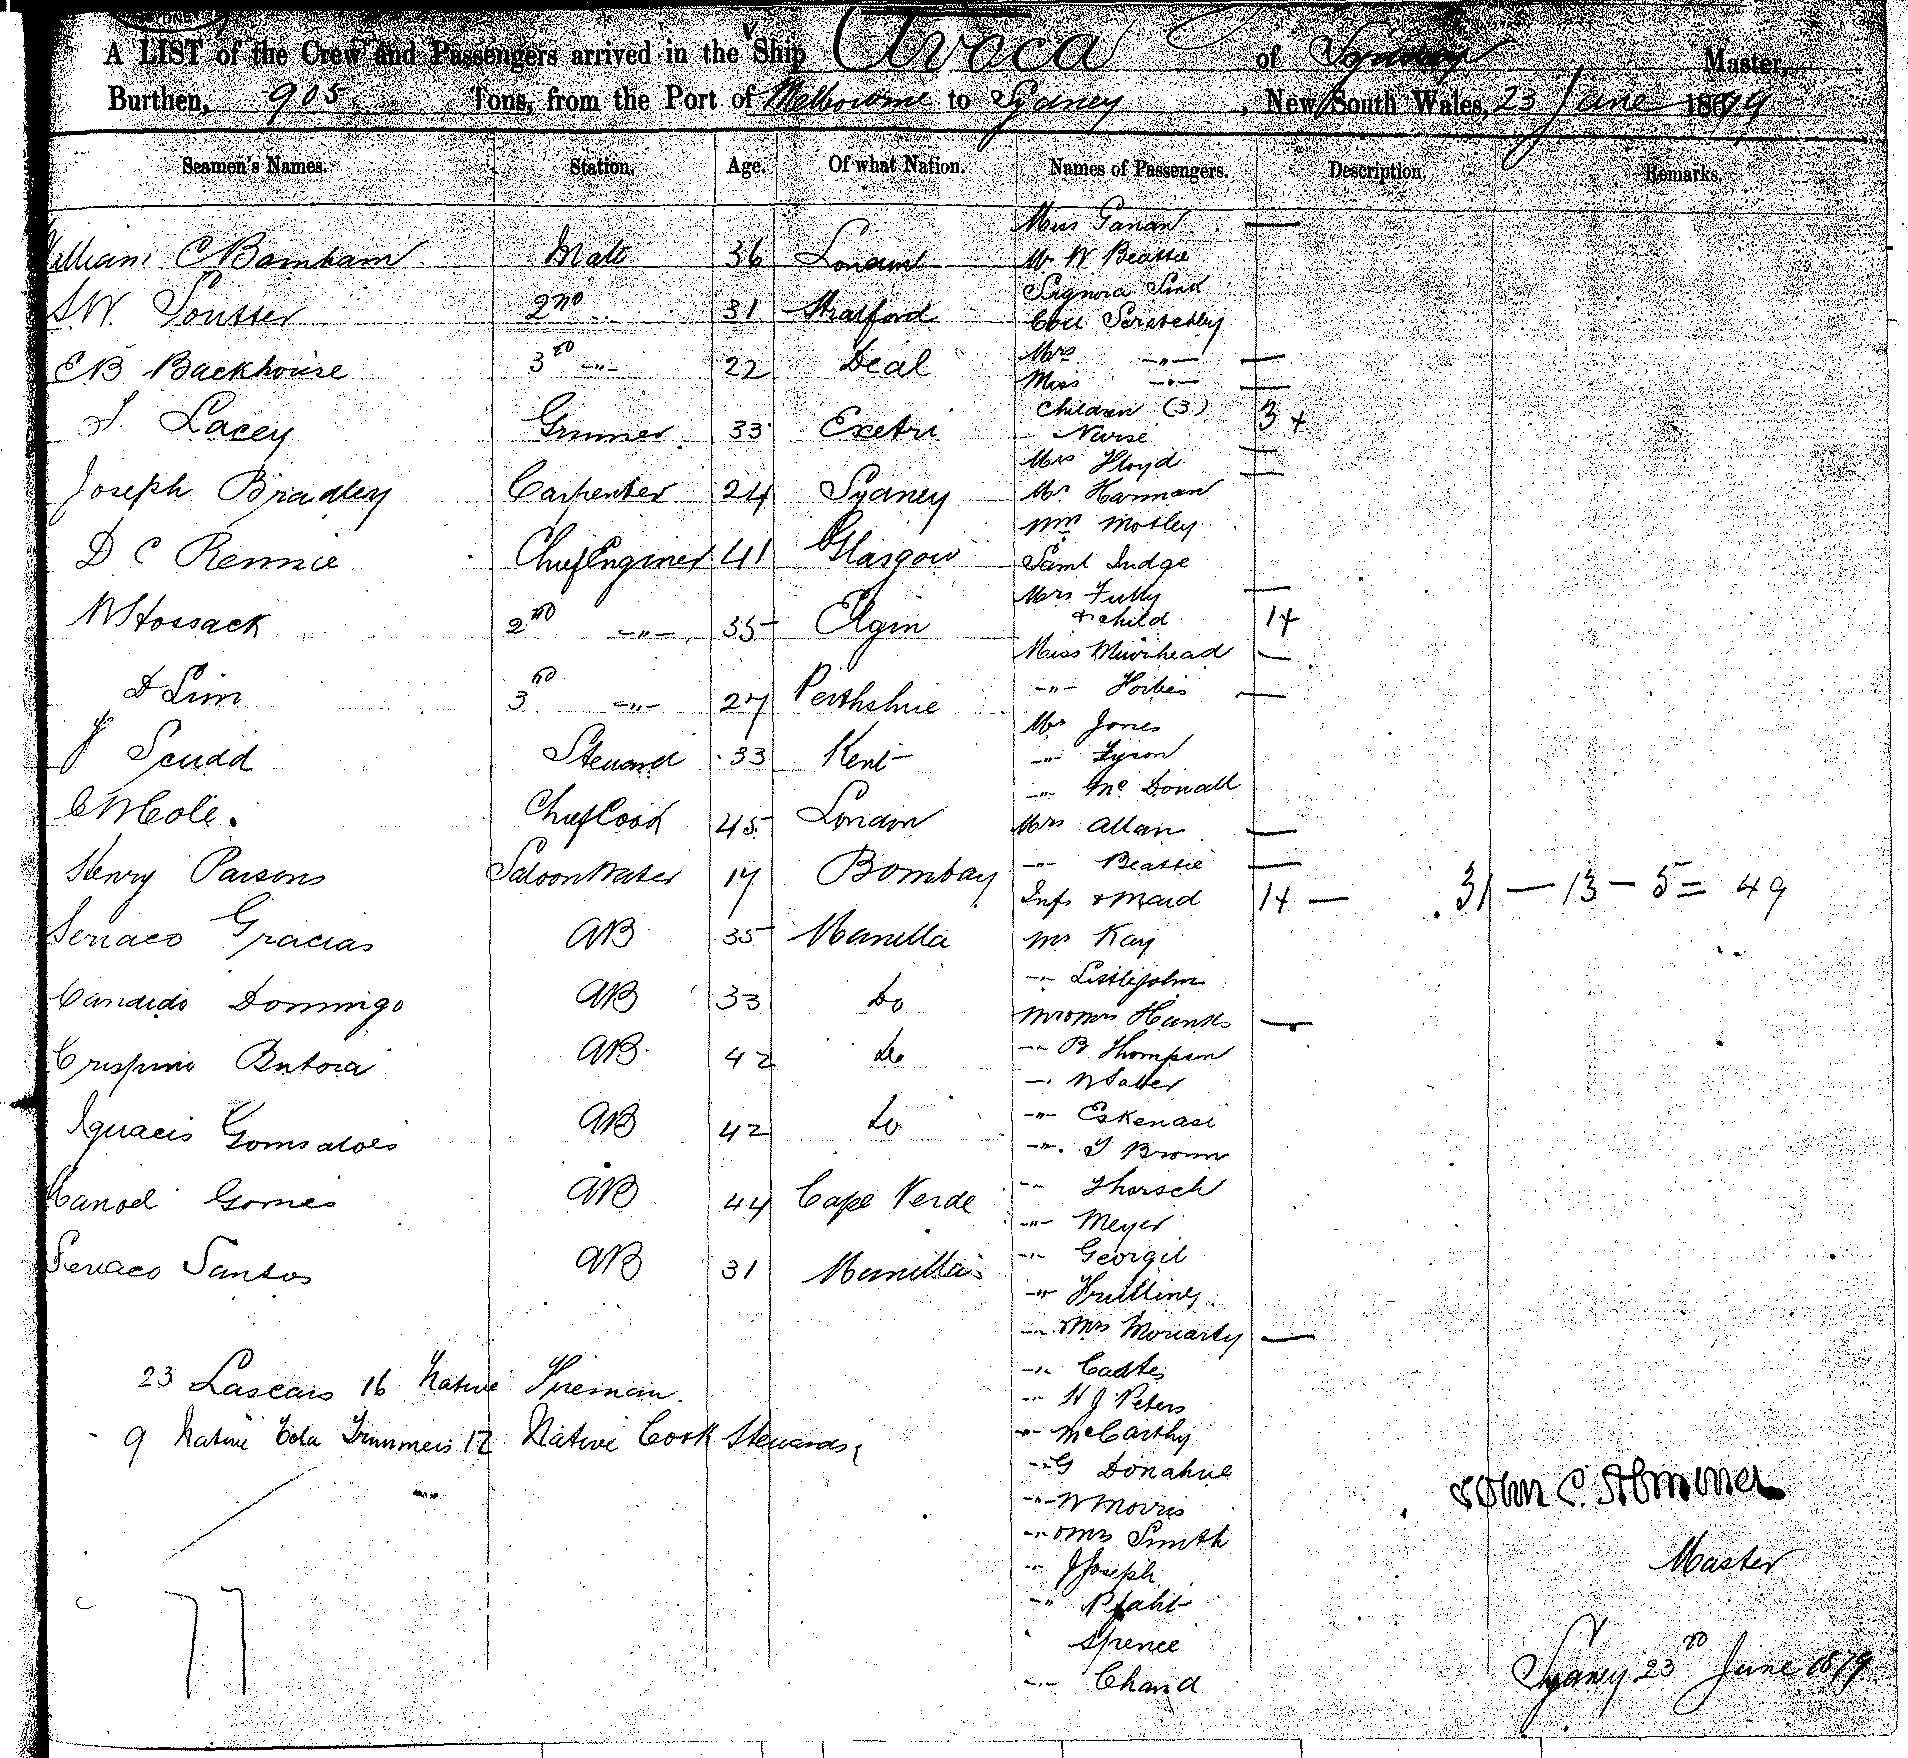 A LIST of the Crew and Passengers arrived in the Ship Avoca of Sydney Master,
Burthen, 905 Tons, from the Port of Melbourne to Sydney, New South Wales, 23 June 1879
Seamen's Names. Station. Age. Of what Nation. Names of Passengers. Description. Remarks.
William C Barnham Mate 36 London
S.W. 2nd 31 Stratford
E B Backhouse 3rd -"- 22 Deal
Lacey Gunner 33
Joseph Bradley Carpenter 24 Sydney
D C Rennie Chief Enginer 41 Glasgow
W Hossack 2nd -"- 35 Elgin
3rd -"- 27 Perthshire
J Scudd Steward 33 Kent
C W Cole. Chief Cook 45 London
Henry Parsons Saloon Waiter 17 Bombay
Gracias AB 35 Manilla
Candido Domingo AB 33 Do
Crispino AB 42 Do
AB 42 Do
Gomes AB 44 Cape Verde
Santos AB 31 Manilla
23 Lascars 16 Native Fireman
9 Native Trimmers 12 Native Cook Stewards
77
Miss —
Mr W Beattie
Signora
Scratchley
Mrs -"- —
Miss -"- —
Children (3) 3+
Nurse —
Mrs Floyd —
Mr Harman
Wm Mosley
Saml Judge
Mrs Tully —
& child 1+
Miss Muirhead —
-"- Forbes —
Mr Jones
-"- Tyson
-"- Mc Donall
Mrs Allan —
-"- Beattie —
Inft & Maid 1+ —
31 — 13 — 5 = 49
Mr Kay
-"- Littlejohn
Mr & Mrs Hanks —
-"- B Thompson
-"- W Salter
-"- Eskenasi
-"- J Brown
-"- Thorsch
-"- Meyer
-"- Georgil
-"-
-"- & Mrs Moriarty —
-"-
-"- H J Peters
-"- McCarthy
-"- G Donahue
-"- W Morris
-"- & Mrs Smith
-"- J Joseph
-"-
" Spence
-"- Chand
John C.
Master
Sydney 23rd June 1879